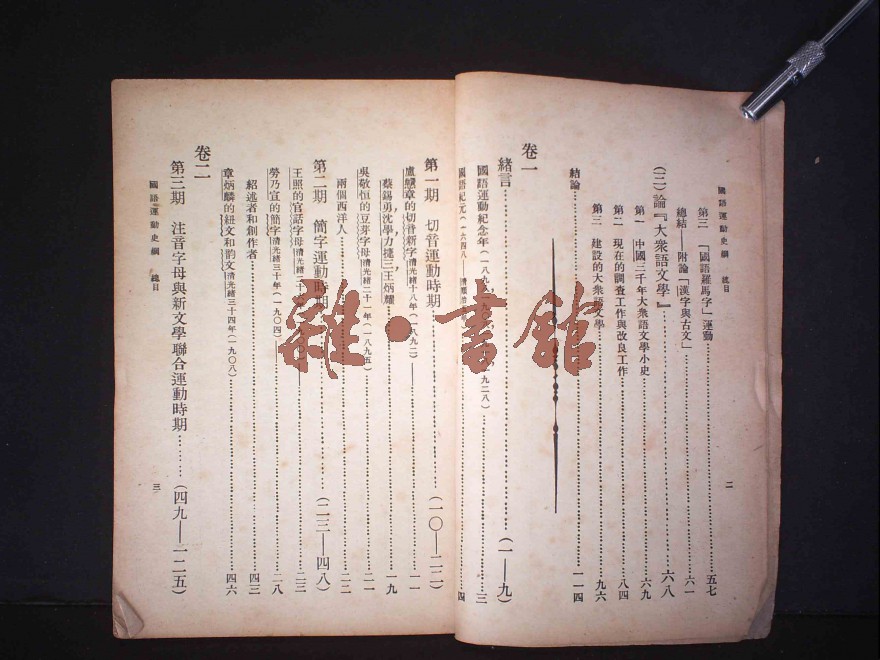 國語運動史綱 總目
二
第三 「國語羅馬字」運動……五七
總結——附論「漢字與古文」……六一
(二)論『大衆語文學』……六八
第一 中國三千年大衆語文學小史……六九
第二 現在的調查工作與改良工作……八四
第三 建設的大衆語文學……九六
結論……一一四
卷一
緒言……(一—九)
國語運動紀念年(一八九 九二八)……三
國語紀元(一六四八——清順治……四
第一期 切音運動時期……(一〇—二二)
盧戇章的切音新字清光緒十八年(一八九二)……一一
蔡錫勇,沈學,力捷三,王炳耀……一九
吳敬恒的豆芽字母清光緒二十一年(一八九五)……二一
兩個西洋人……二二
第二期 簡字運動時期……(二三—四八)
王照的官話字母清光緒二十……二三
勞乃宣的簡字清光緒三十年(一九〇四)……二八
紹述者和創作者……四三
章炳麟的紐文和韵文清光緒三十四年(一九〇八)……四六
卷二
第三期 注音字母與新文學聯合運動時期……(四九—一二五)
國語運動史綱 總目
三
雜·書館